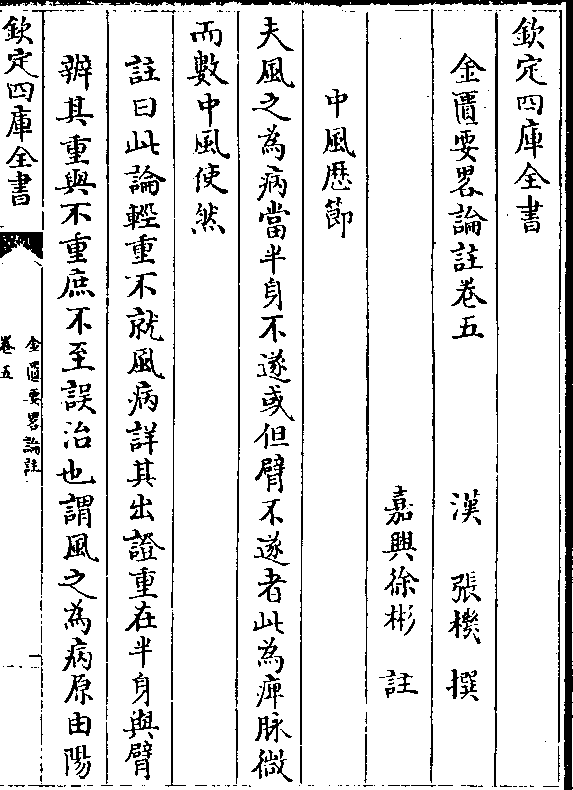 欽定四庫全書
金匱要畧論註卷五
漢　張機　撰
嘉興徐彬　註
中風歴節
夫風之為病當半身不遂或但臂不遂者此為痺脉微
而數中風使然
註曰此論輕重不就風病詳其出證重在半身與臂
辨其重與不重庶不至誤治也謂風之為病原由陽
欽定四庫全書
金匱要畧論註
卷五
一